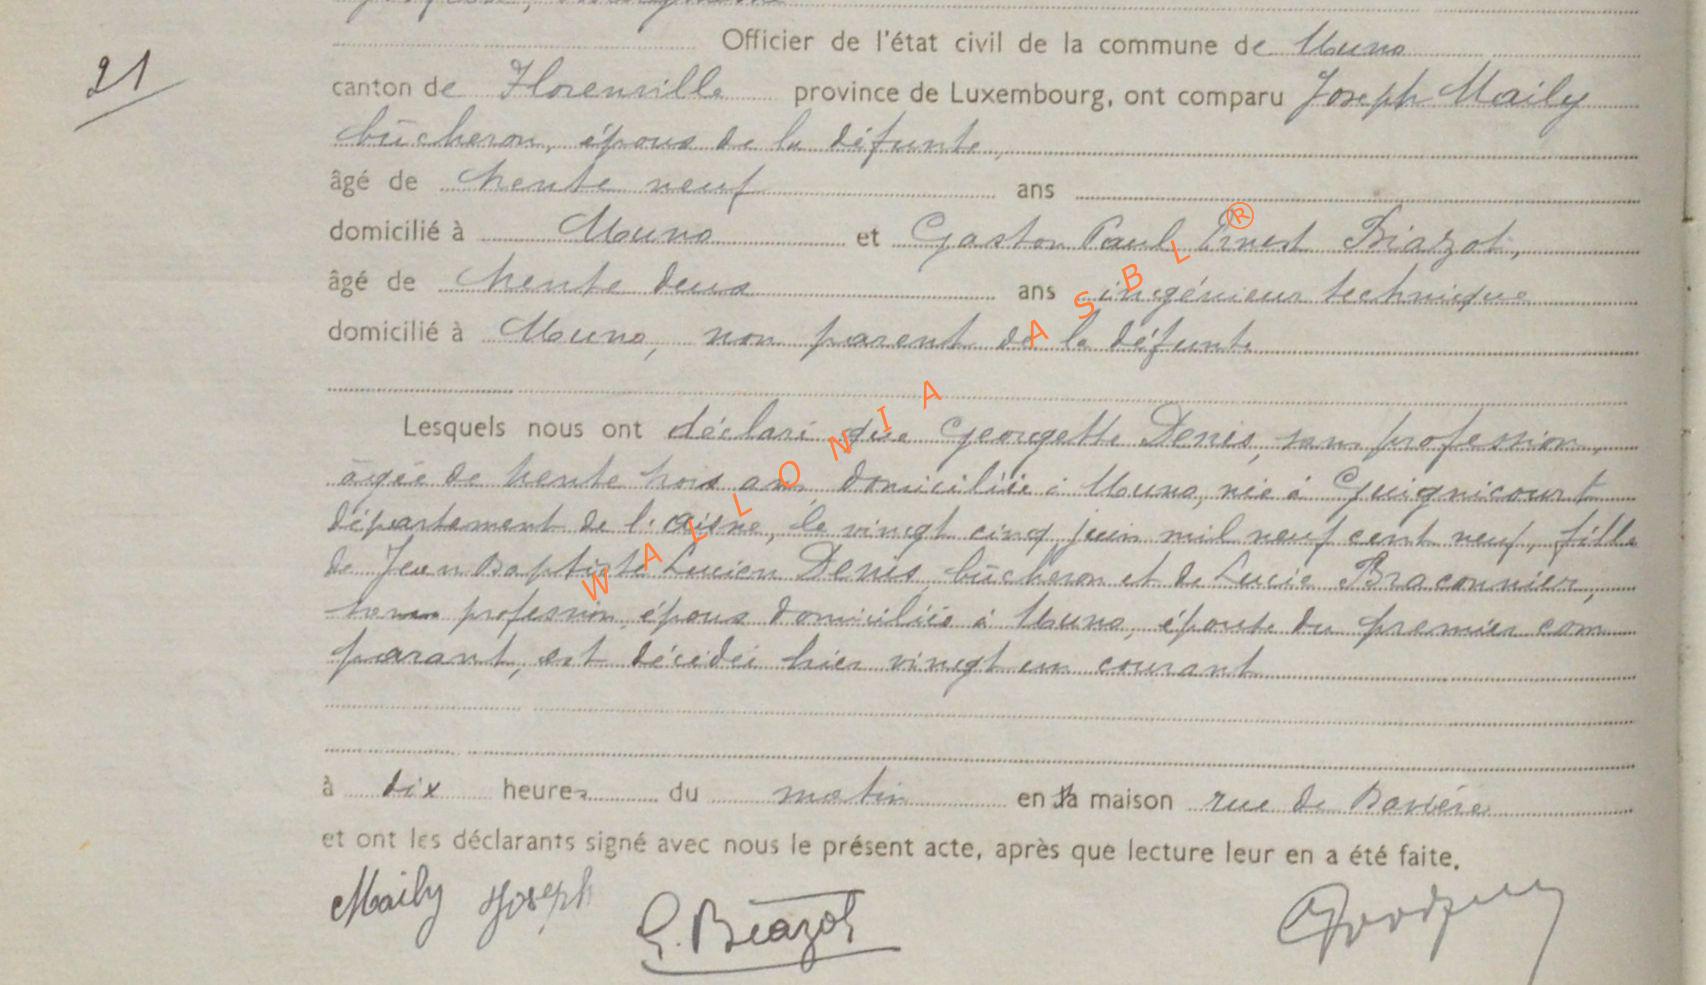 21
Officier de l'état civil de la commune de Muno
canton de Florenville province de Luxembourg, ont comparu Joseph Maily
bûcheron, époux de la défunte,
âgé de trente neuf ans
domicilié à Muno et Gaston Paul Ernest Biazot,
âgé de trente deux ans ingénieur technique
domicilié à Muno, non parent de la défunte
Lesquels nous ont déclaré que Georgette Denis, sans profession,
âgée de trente trois ans, domiciliée à Muno, née à Guignicourt
département de l'Aisne, le vingt cinq juin mil neuf cent neuf, fille
de Jean Baptiste Lucien Denis, bûcheron et de Lucie Braconnier,
sans profession, époux domiciliés à Muno, épouse du premier com
parant, est décédée hier vingt un courant
à dix heures du matin en sa maison rue de Bavière
et ont les déclarants signé avec nous le présent acte, après que lecture leur en a été faite.
Maily Joseph G. Biazot
WALLONIA ASBL ®